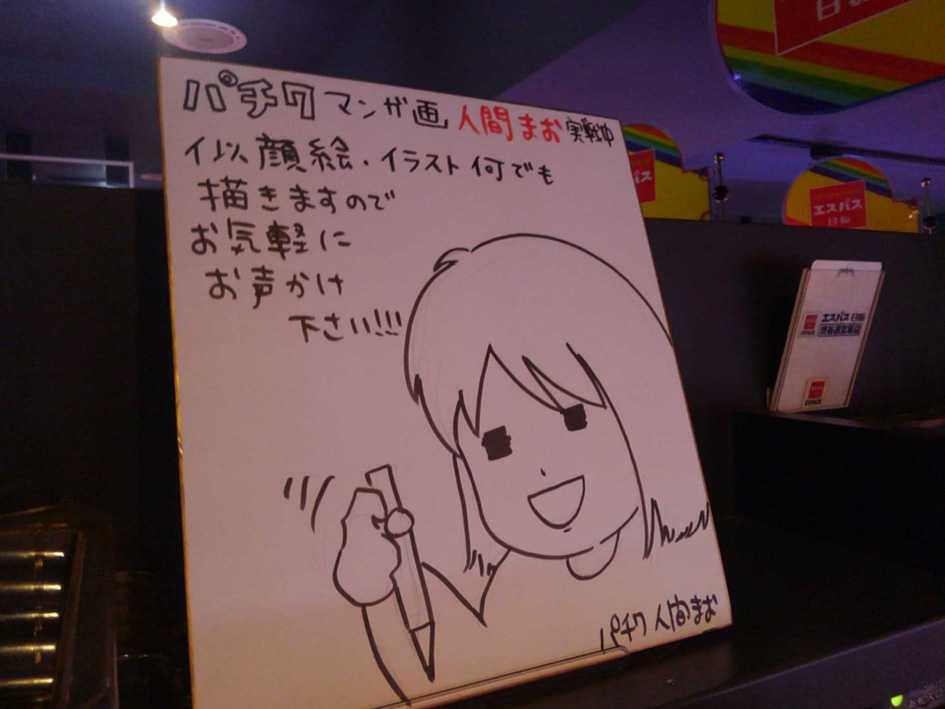 パチワ マンガ画 人間まお 実戦中
似顔絵・イラスト何でも
描きますので
お気軽に
お声かけ
下さい!!!
パチワ 人間まお
エスパス
エスパス 日拓